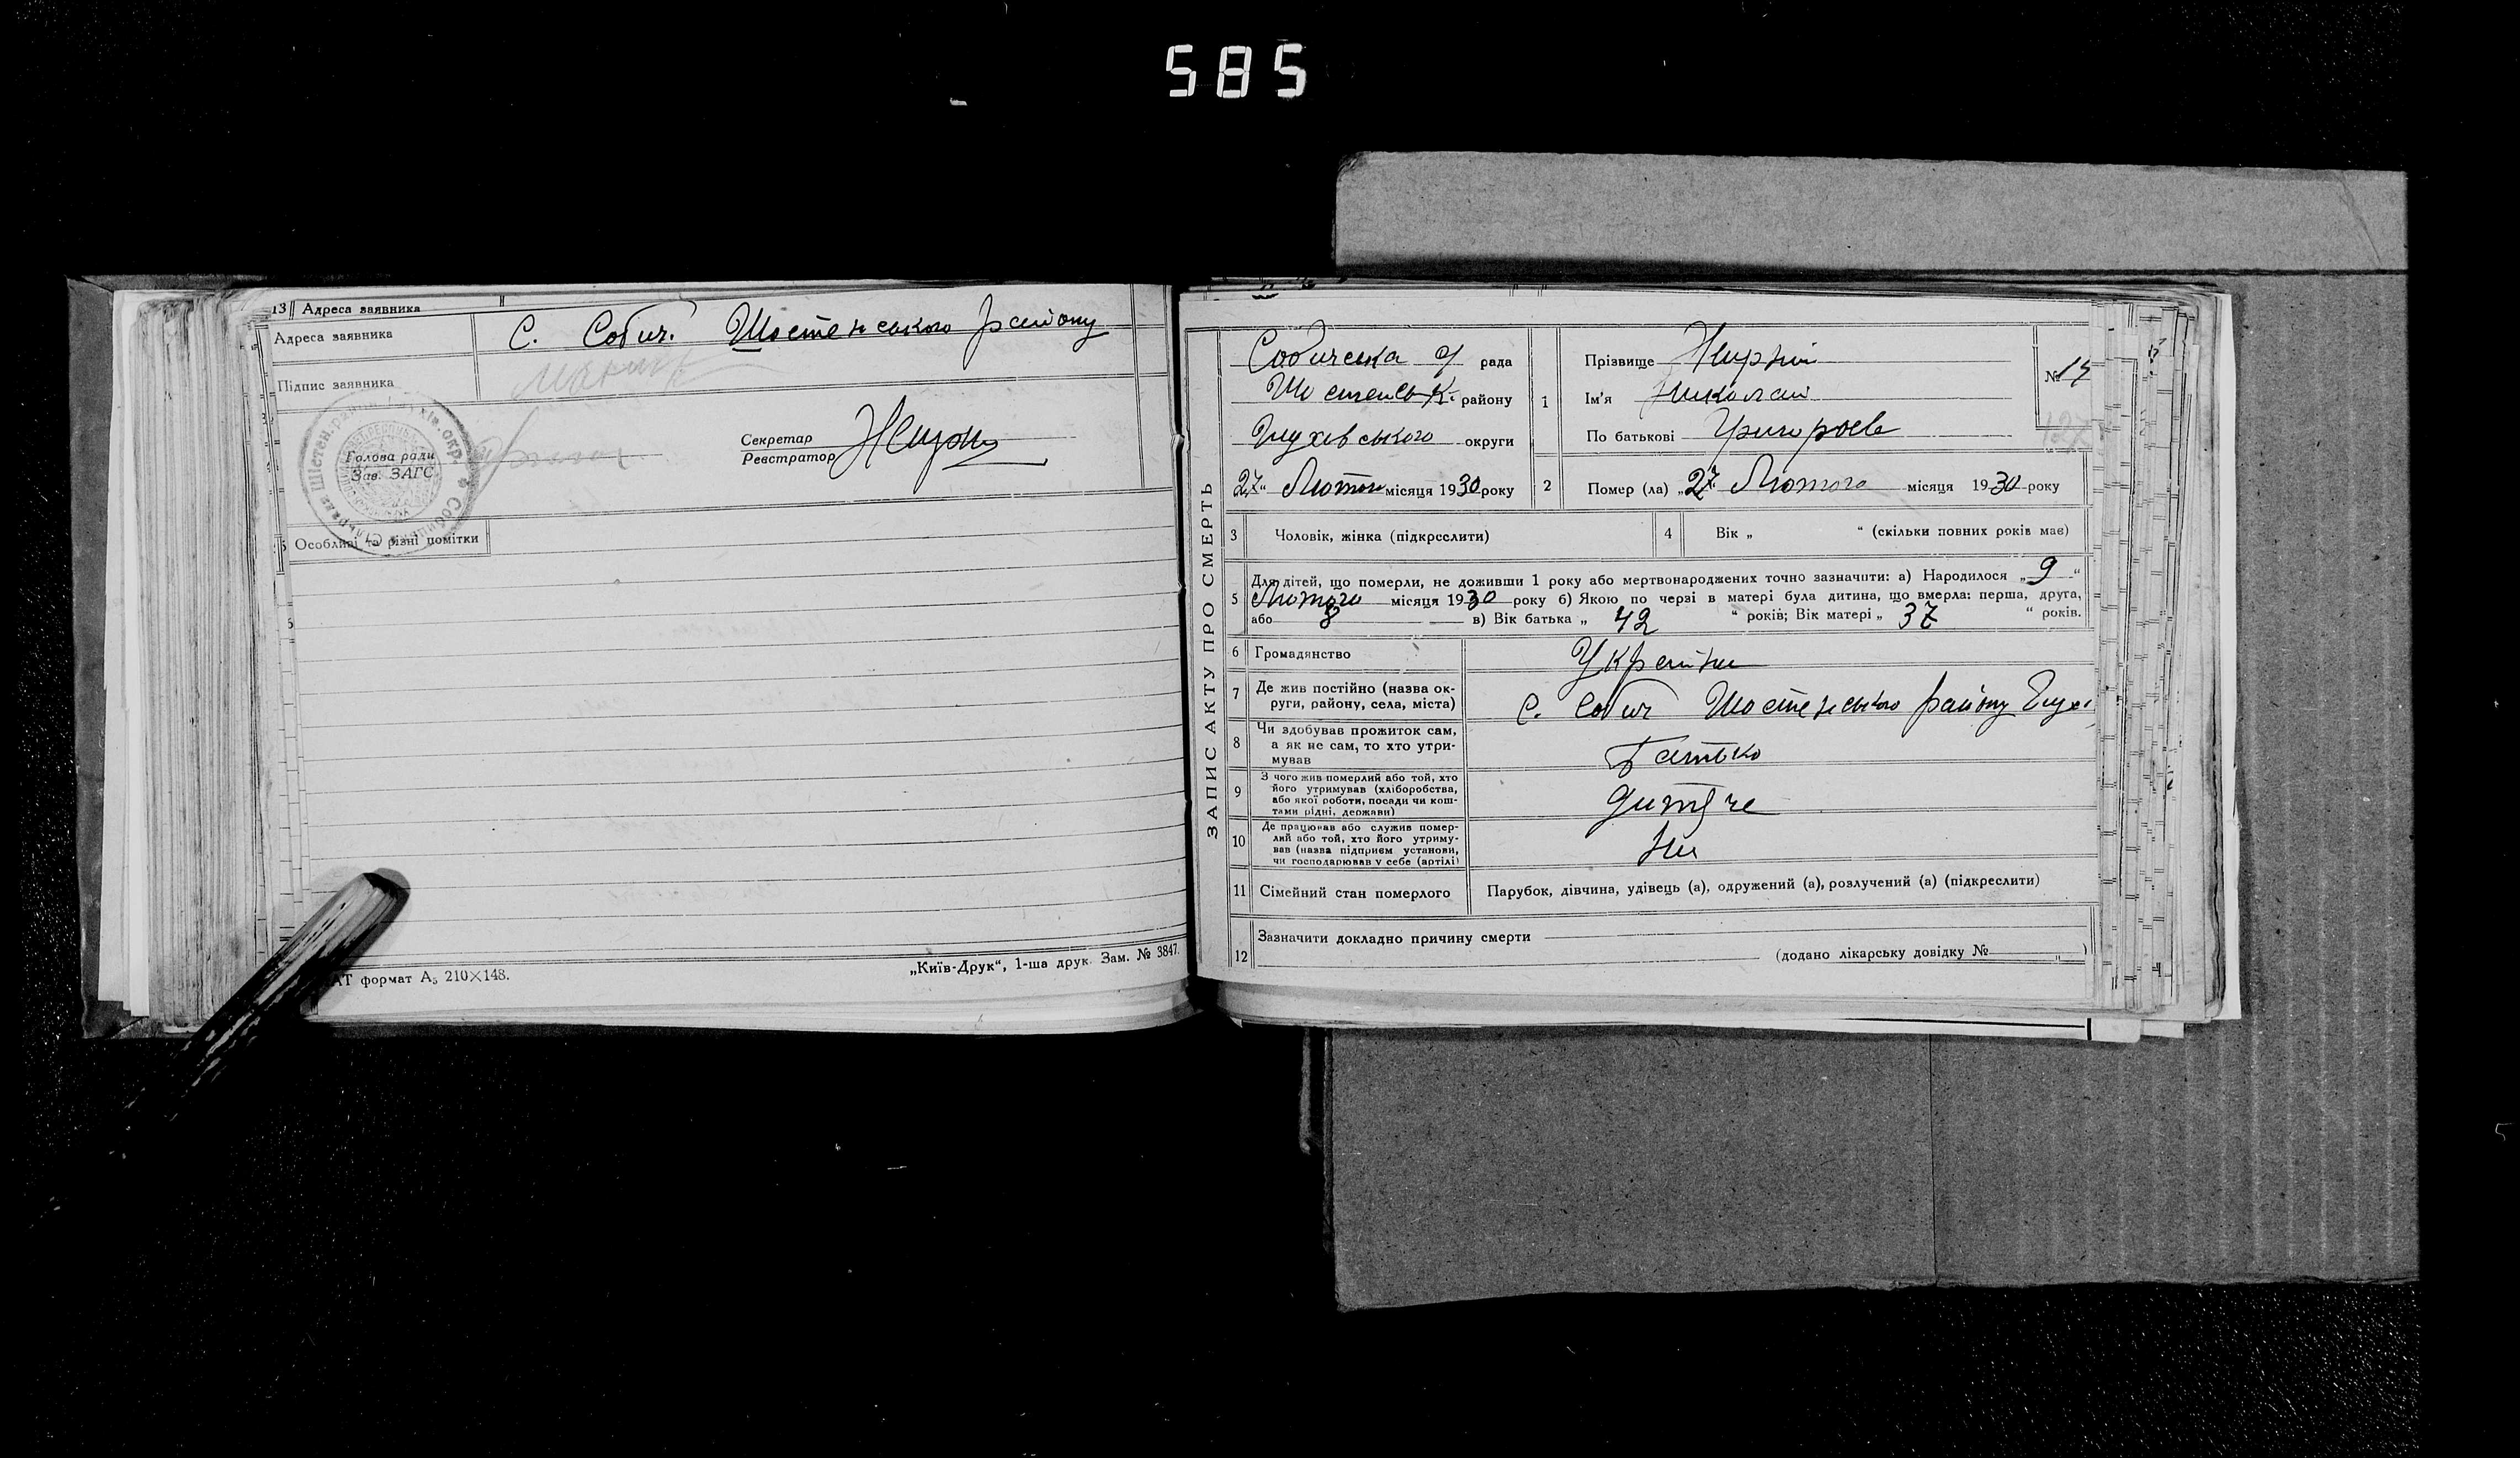 585
13 Адреса заявника
Адреса заявника С. Собич. Шостенського району
Підпис заявника
Голова ради
Зав. ЗАГС
Секретар
Реєстратор
Особливі та різні помітки
формат А5 210×148.
„Київ-Друк“, 1-ша друк. Зам. № 3847.
ЗАПИС АКТУ ПРО СМЕРТЬ
Собичська с/ рада
Шостенськ. району
Глухівського округи
27“ Лютого місяця 1930 року
1 Прізвище
Ім'я Николай
По батькові Григорьев
№ 14
2 Помер (ла) „27“ Лютого місяця 1930 року
3 Чоловік, жінка (підкреслити)
4 Вік „ “ (скільки повних років має)
5 Для дітей, що померли, не доживши 1 року або мертвонароджених точно зазначити: а) Народилося „9“
Лютого місяця 1930 року б) Якою по черзі в матері була дитина, що вмерла: перша, друга,
або 8 в) Вік батька „ 42 “ років; Вік матері „ 37 “ років.
6 Громадянство України
7 Де жив постійно (назва ок-
руги, району, села, міста) С. Собич Шостенського району Глух.
8 Чи здобував прожиток сам,
а як не сам, то хто утри-
мував Батько
9 З чого жив померлий або той, хто
його утримував (хліборобства,
або якої роботи, посади чи кош-
тами рідні, держави) дитяче
10 Де працював або служив помер-
лий або той, хто його утриму-
вав (назва підприєм установи,
чи господарював у себе (артілі)
11 Сімейний стан померлого Парубок, дівчина, удівець (а), одружений (а), розлучений (а) (підкреслити)
12 Зазначити докладно причину смерти
(додано лікарську довідку № „ )